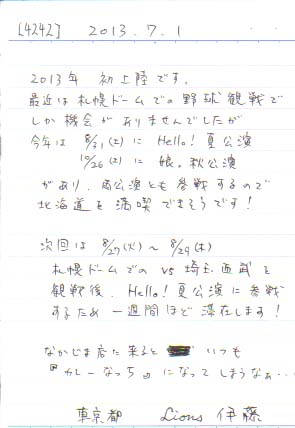 [4242] 2013.7.1
2013年 初上陸です。
最近は札幌ドームでの野球観戦で
しか機会がありませんでしたが
今年は 8/31(土)に Hello! 夏公演
10/26(土)に 娘。秋公演
があり、両公演とも参戦するので
北海道を満喫できそうです!
次回は 8/27(火)～8/29(木)
札幌ドームでの vs 埼玉西武を
観戦後、Hello! 夏公演に参戦
するため 一週間ほど滞在します!
なかじま店に来ると いつも
『カレーなっち』になってしまうなぁ…
東京都 Lions 伊藤